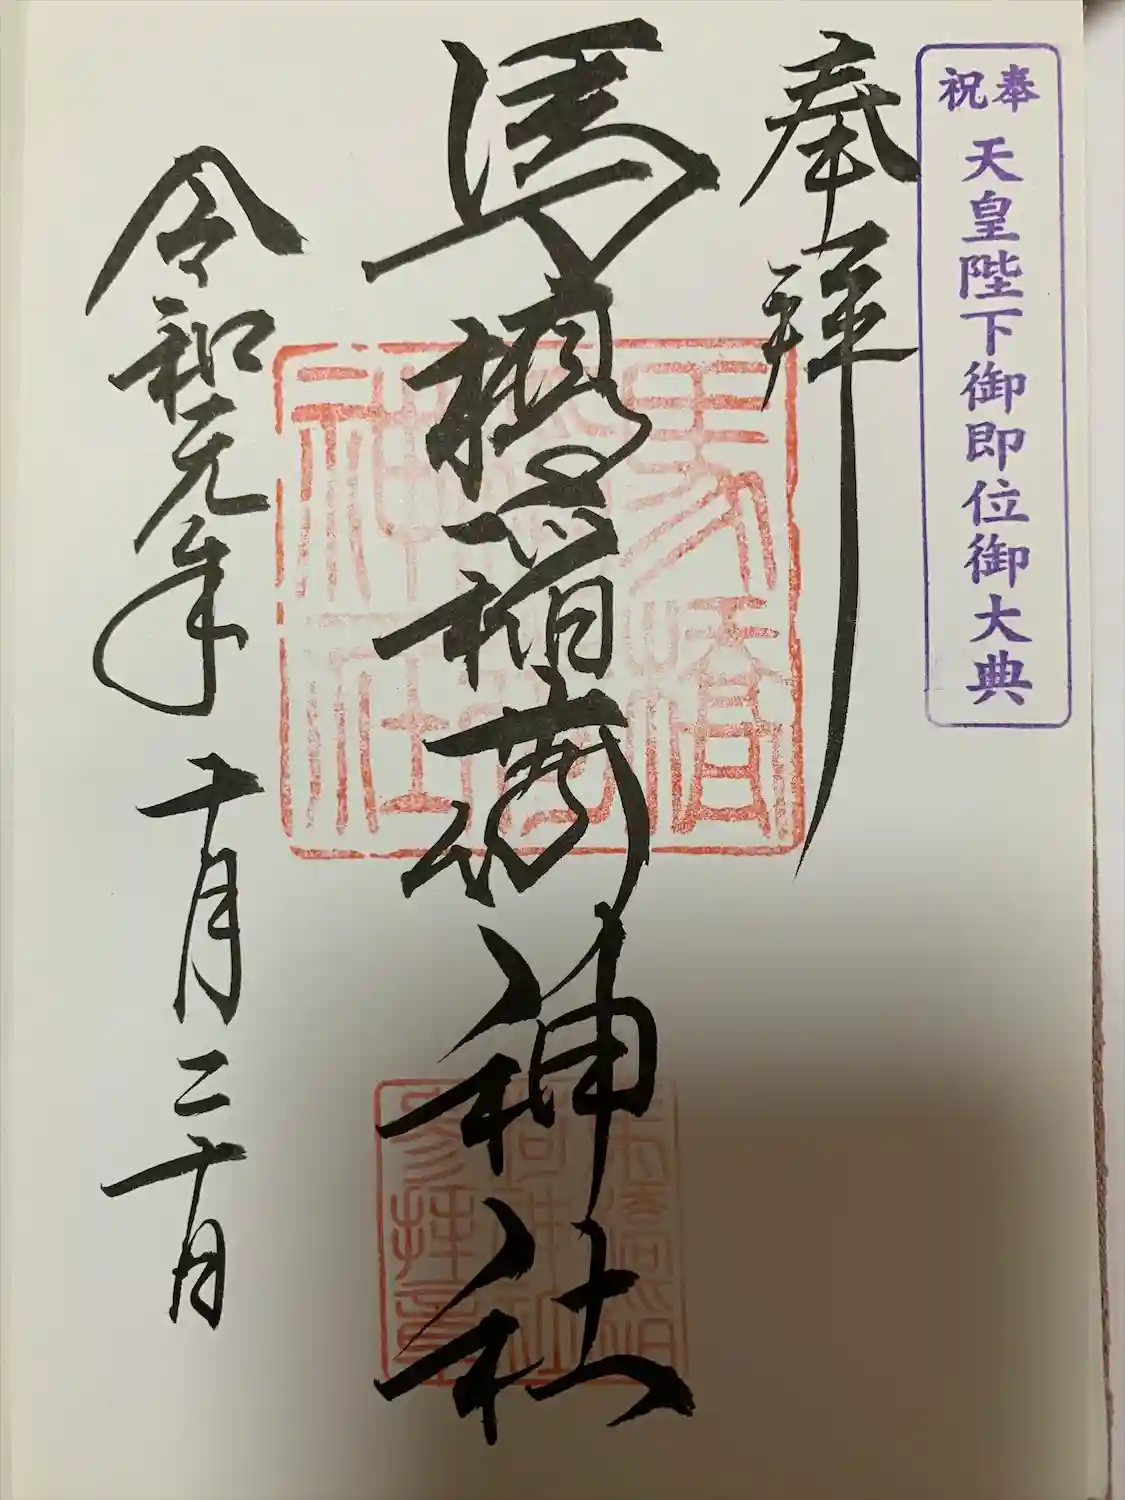 奉祝
天皇陛下御即位御大典
奉拝
馬橋稲荷神社
令和元年十月二十日
馬橋稲荷神社
馬橋稲荷神社参拝章